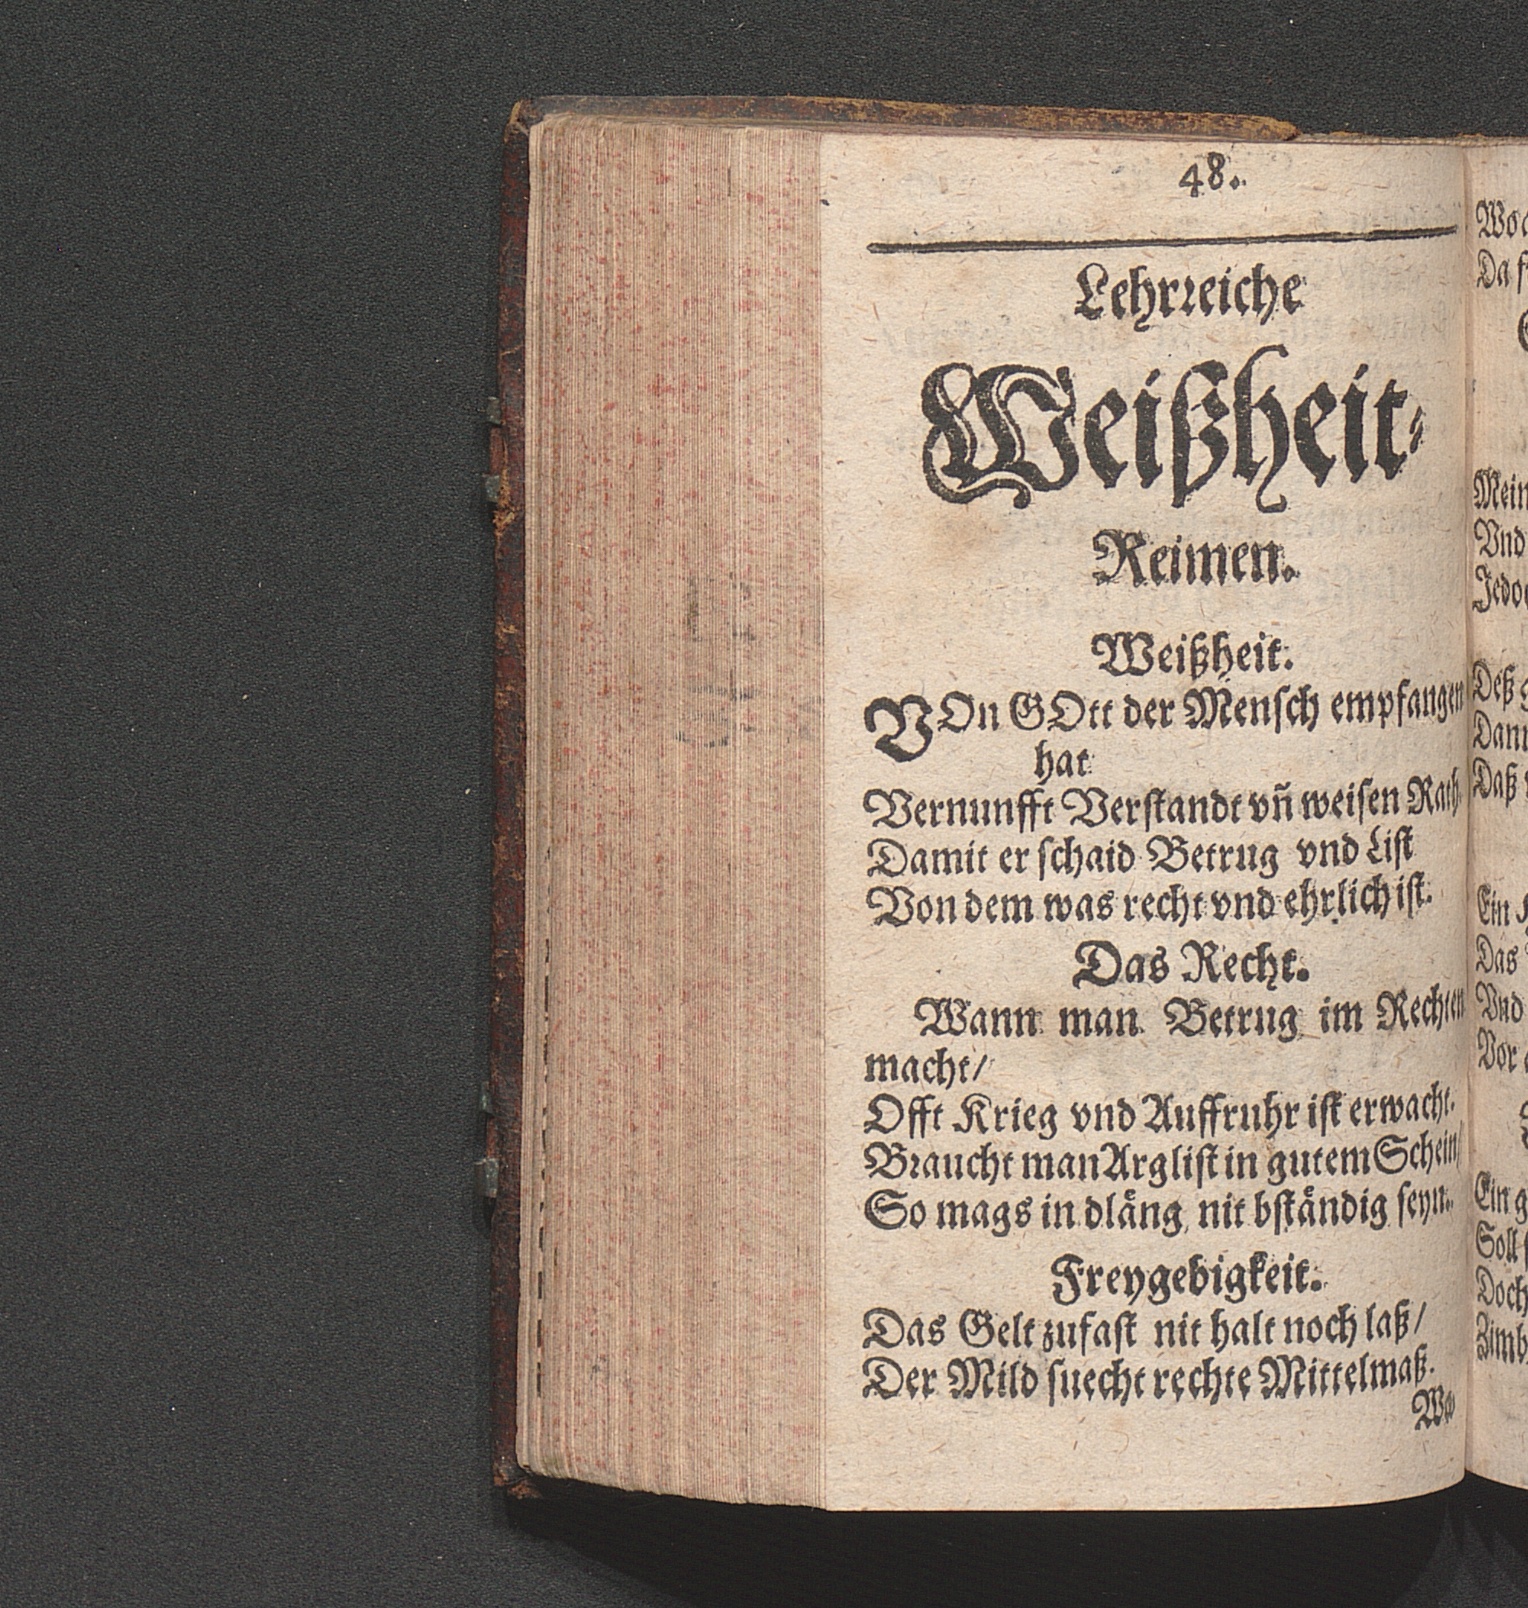 48.
Lehrreiche
Weißheit⸗
Reimen.
Weißheit.
VOn GOtt der Mensch empfangen
hat
Vernunfft Verstandt vn̄ weisen Rath
Damit er schaid Betrug vnd List
Von dem was recht vnd ehrlich ist.
Das Recht.
Wann man Betrug im Rechten
macht/
Offt Krieg vnd Auffruhr ist erwacht.
Braucht man Arglist in gutem Schein/
So mags in dläng nit bständig seyn.
Freygebigkeit.
Das Gelt zufast nit halt noch laß/
Der Mild suecht rechte Mittelmaß.
Wo
Da
Mein
Vnd
Deß
Daß
Ein
Das
Vnd
Vor
Ein
Soll
Doch